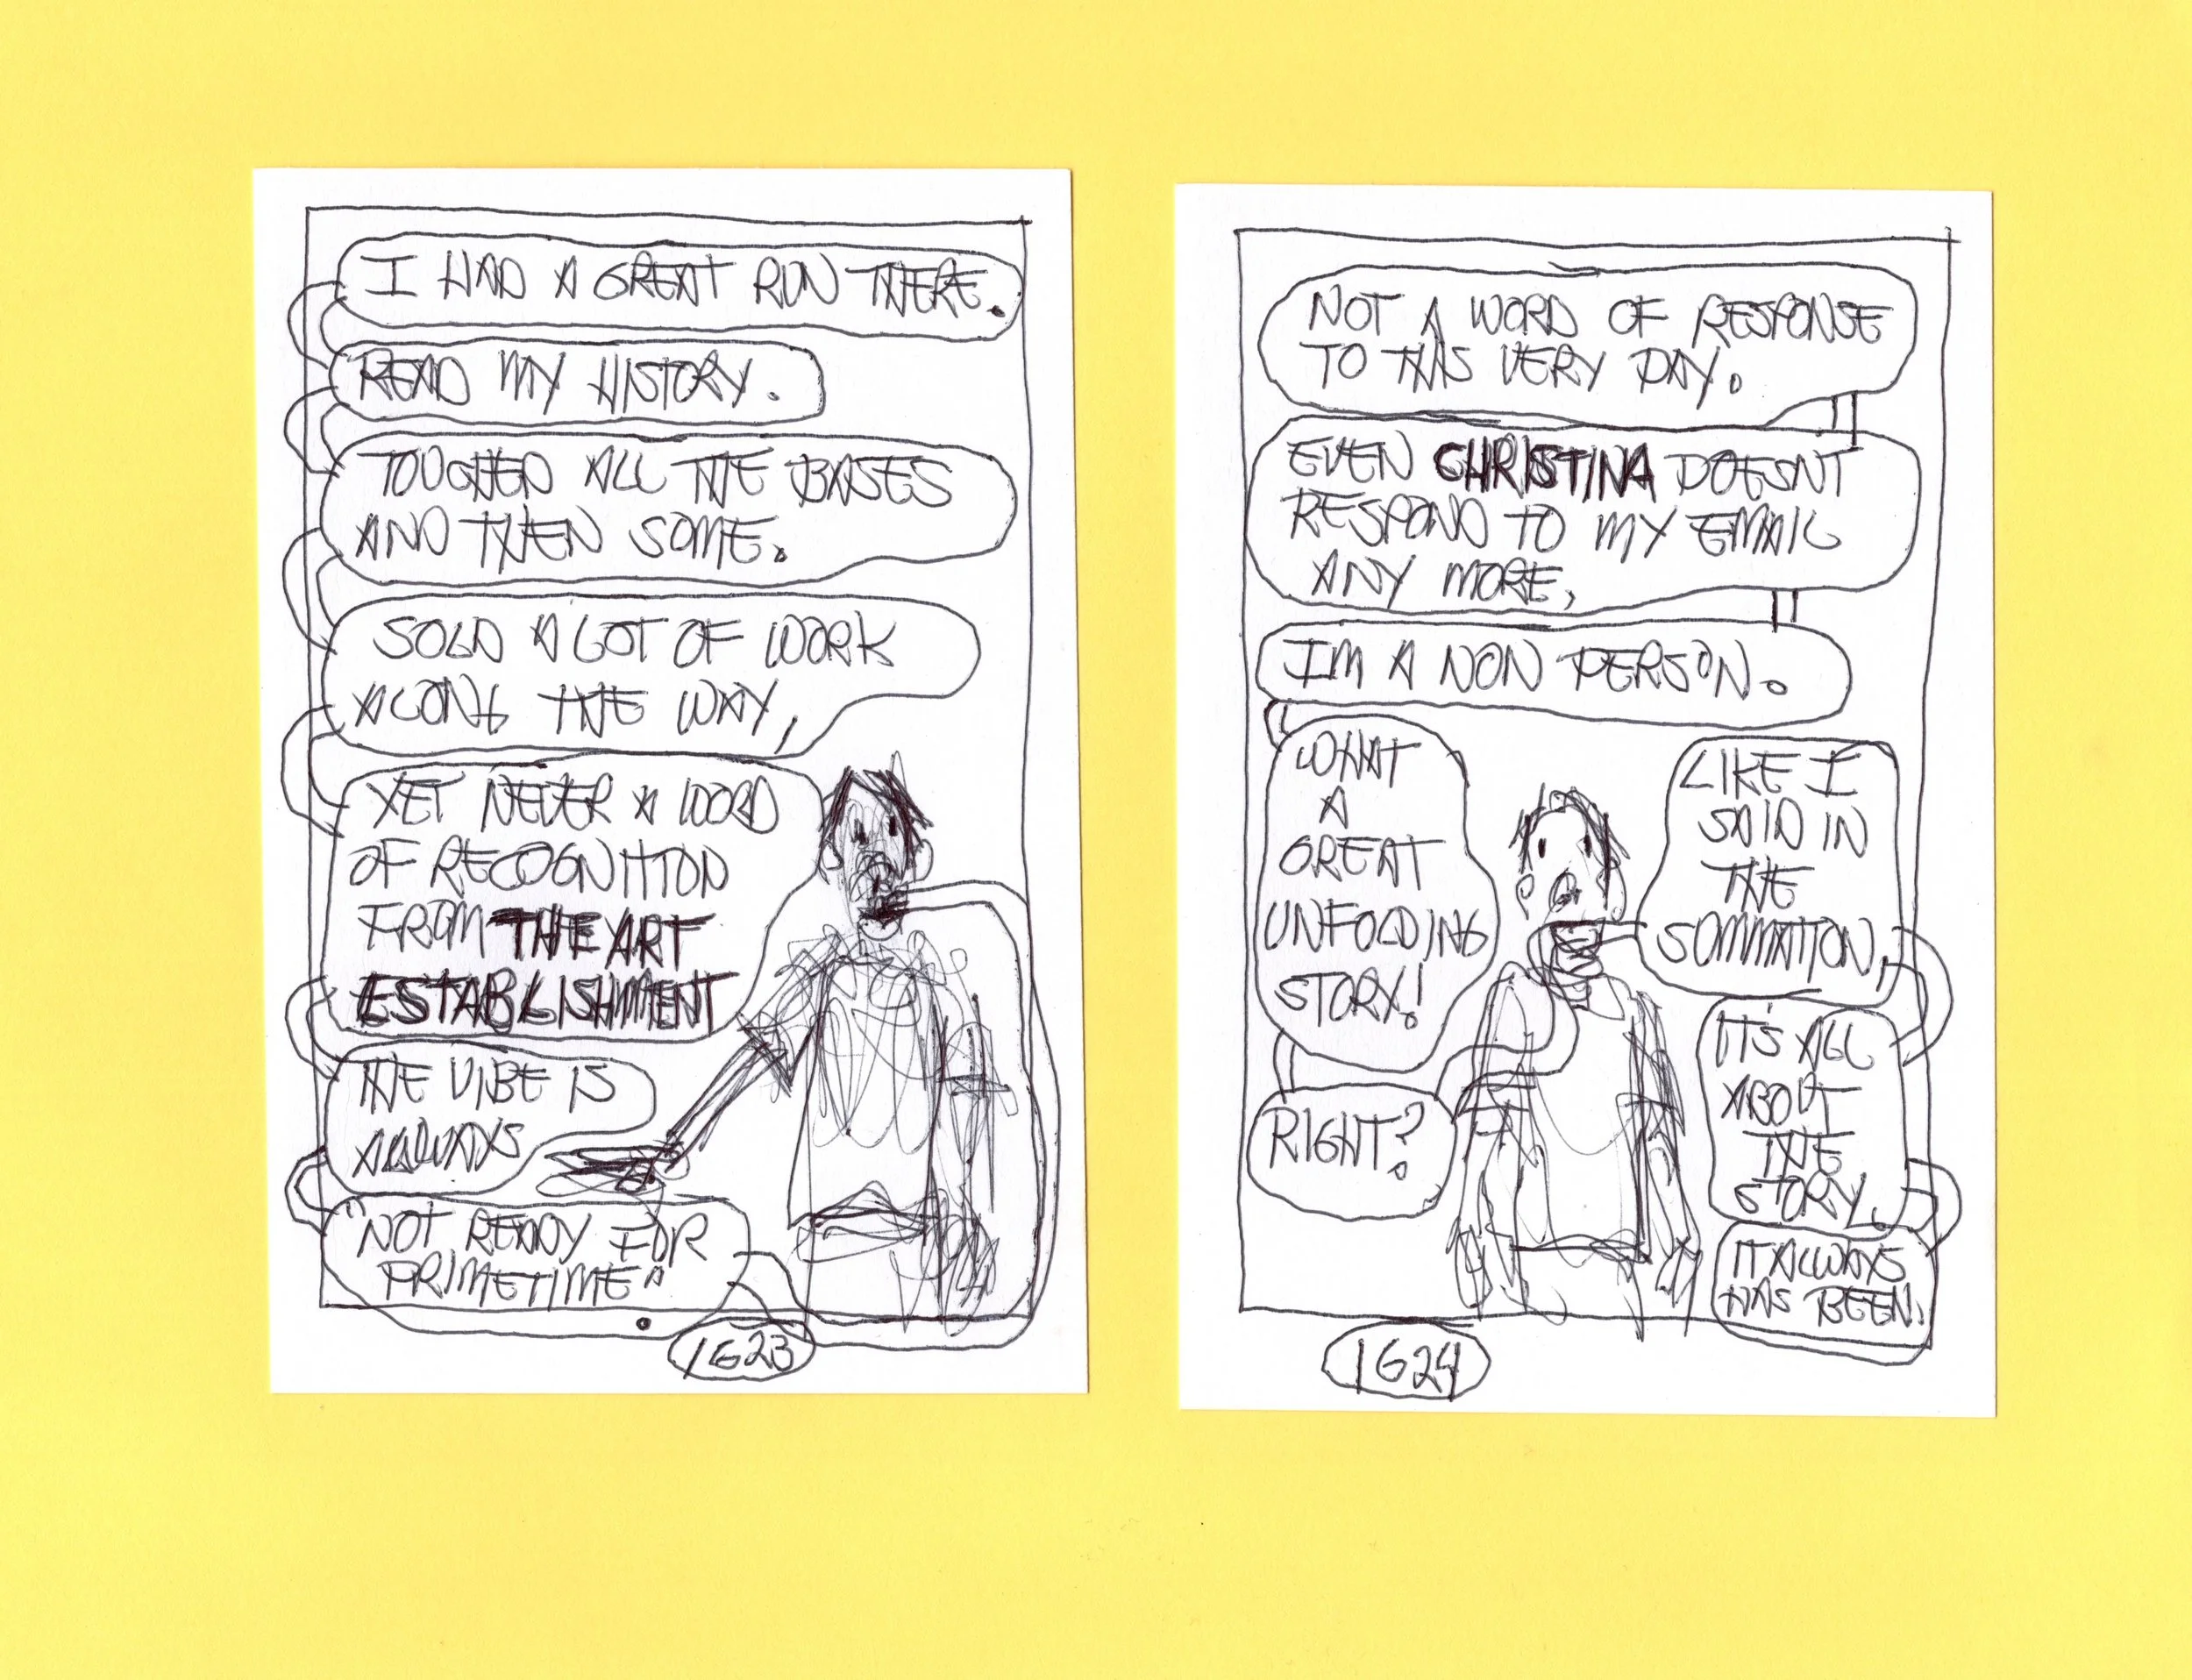 I HAD A GREAT RUN THERE.
READ MY HISTORY.
TOUCHED ALL THE BASES
AND THEN SOME.
SOLD A LOT OF WORK
ALONG THE WAY,
YET NEVER A WORD
OF RECOGNITION
FROM THE ART
ESTABLISHMENT
THE VIBE IS
ALWAYS
"NOT READY FOR
PRIMETIME"
.
1623
NOT A WORD OF RESPONSE
TO THIS VERY DAY.
EVEN CHRISTINA DOESNT
RESPOND TO MY EMAIL
ANY MORE,
IM A NON PERSON.
WHAT
A
GREAT
UNFOLDING
STORY!
RIGHT?
LIKE I
SAID IN
THE
SOMMATION,
IT'S ALL
ABOUT
THE
STORY.
IT ALWAYS
HAS BEEN.
1624